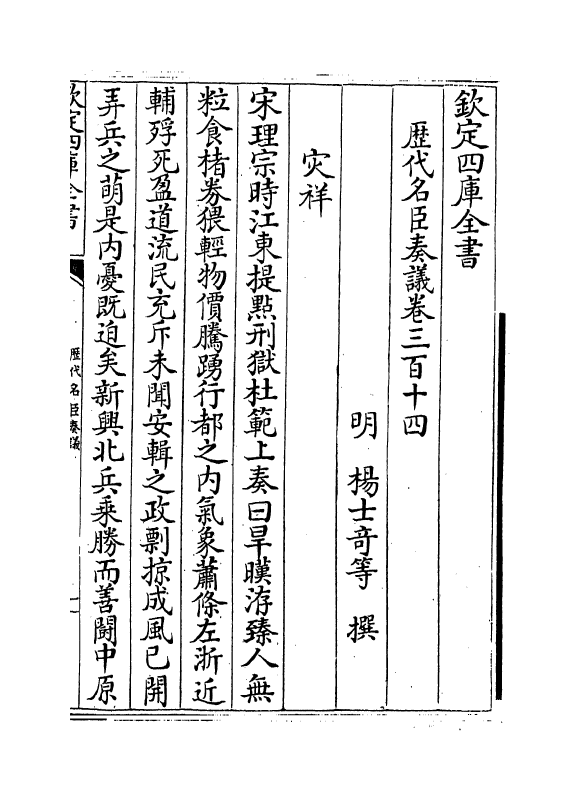 欽定四庫全書
歴代名臣奏議卷三百十四
明 楊士竒等 撰
灾祥
宋理宗時江東提㸃刑獄杜範上奏曰旱暵洊臻人無
粒食楮劵猥輕物價騰踴行都之内氣象蕭條左浙近
輔殍死盈道流民充斥未聞安輯之政剽掠成風已開
弄兵之萌是内憂既迫矣新興北兵乗勝而善鬬中原
欽定四庫全書
歴代名臣奏議
一